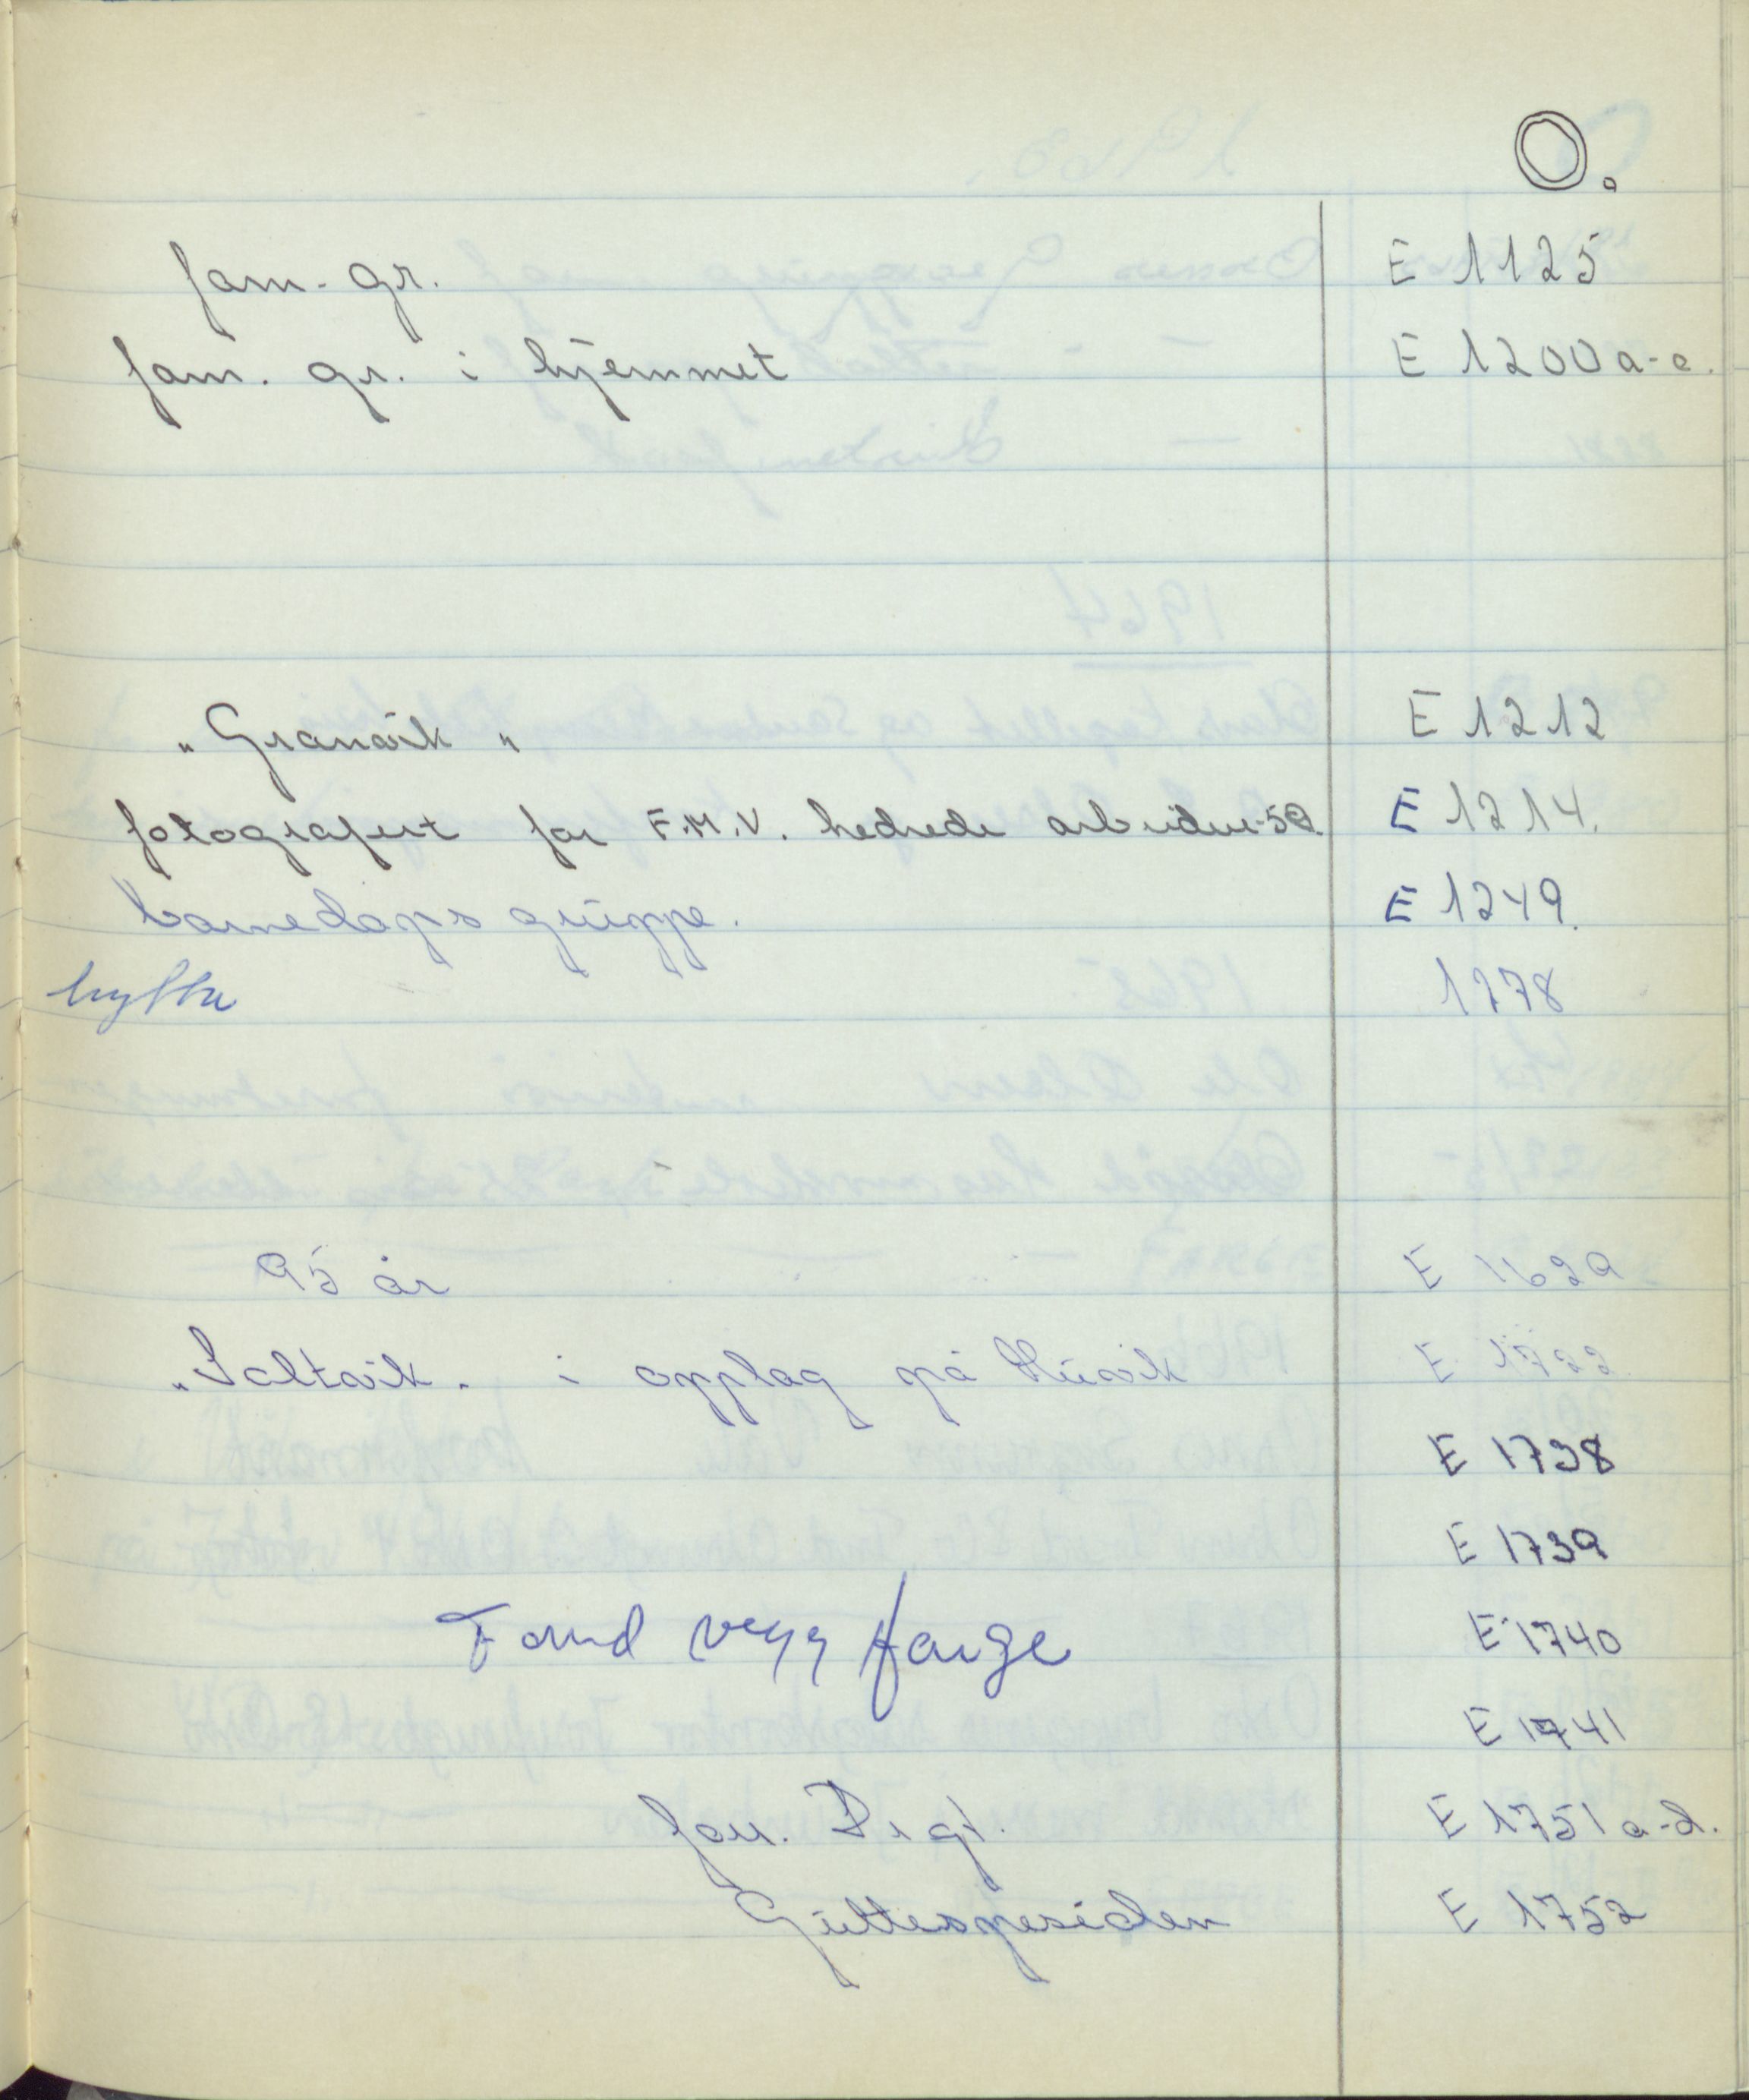 O.
fam. gr. E 1125
fam. gr. i hjemmet E 1200 a-e.
"Granvik" E 1212
fotografert for F.M.V. hedrede arbeider-59. E 1214.
barnedags gruppe. E 1249.
hytta 1278
95 år E 1629
"Saltvik" i opplag på Husvik E 1722.
E 1738
E 1739
Farge E 1740
E 1741
E 1751 a-d.
Guttespesiden E 1752